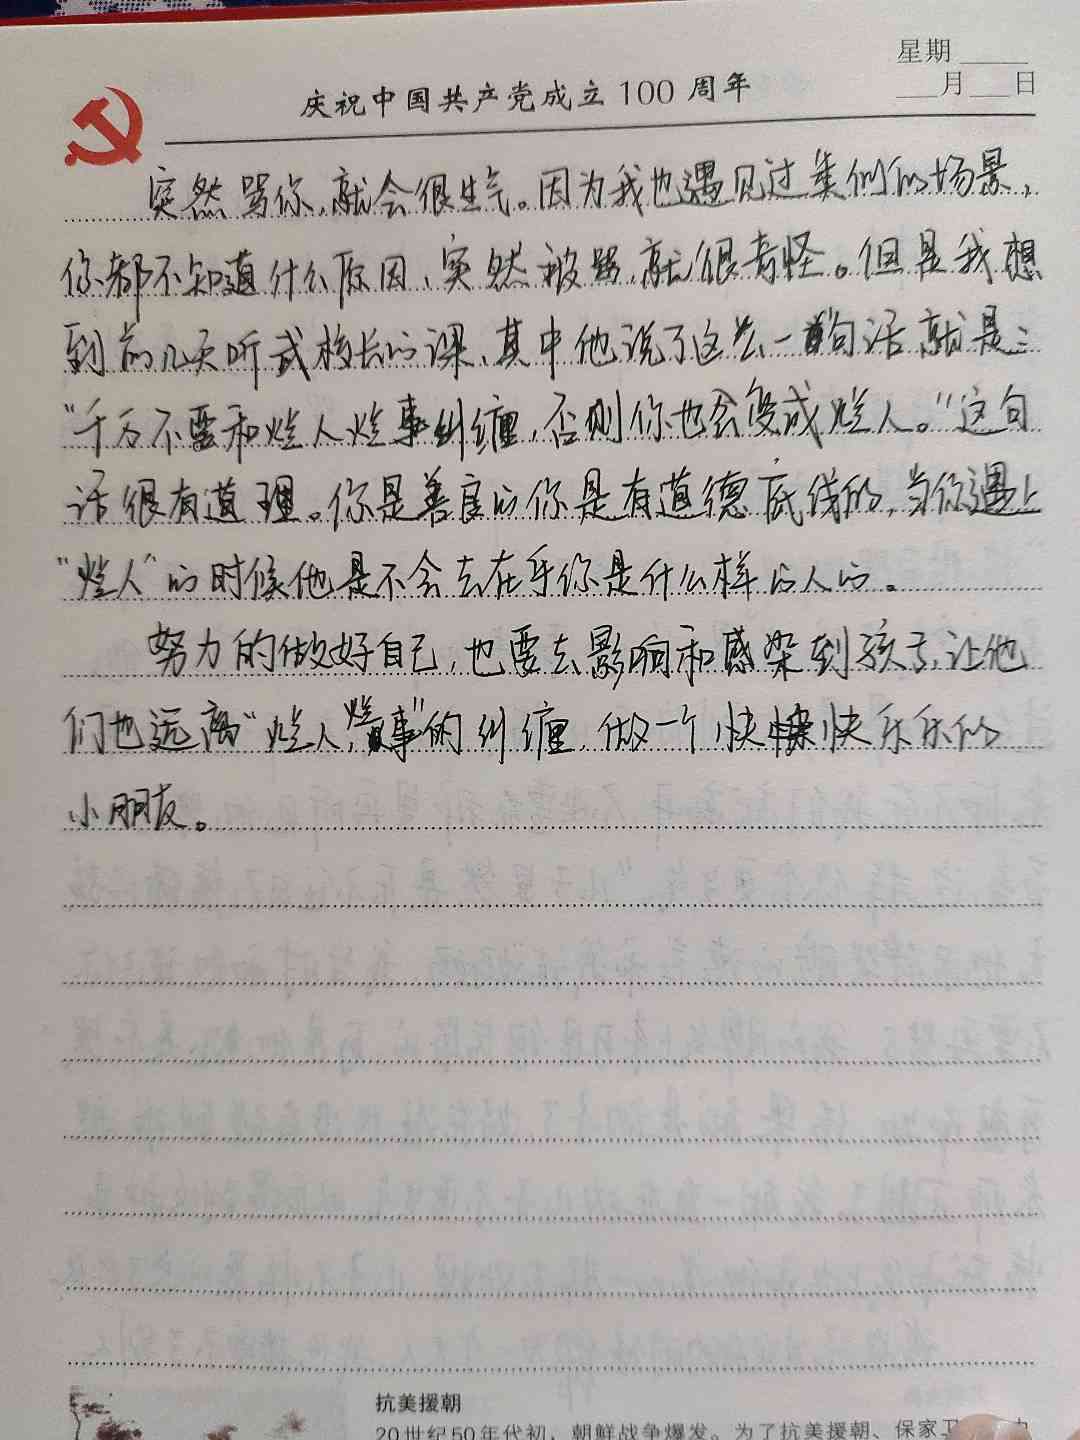 星期____
___月___日
庆祝中国共产党成立100周年
突然骂你,就会很生气。因为我也遇见过类似的场景,
你都不知道什么原因、突然被骂,就很奇怪。但是我想
到前几天听武校长的课、其中他说了这么一句话就是:
“千万不要和烂人烂事纠缠,否则你也会变成烂人。”这句
话很有道理。你是善良的你是有道德底线的,当你遇上
“烂人”的时候他是不会去在乎你是什么样的人的。
努力的做好自己,也要去影响和感染到孩子,让他
们也远离“烂人,烂事”的纠缠,做一个快快乐乐的
小朋友。
抗美援朝
20世纪50年代初,朝鲜战争爆发。为了抗美援朝、保家卫